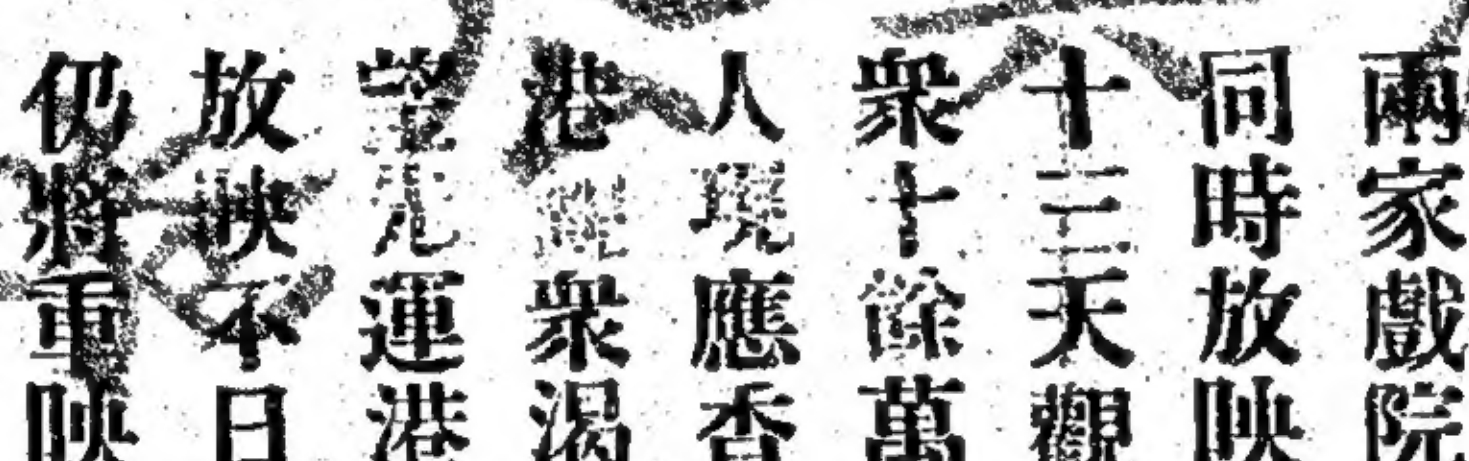 兩家戲院
同時放映
十三天觀
衆十餘萬
人現應香
港衆渴
望先運港
放映不日
仍將重映